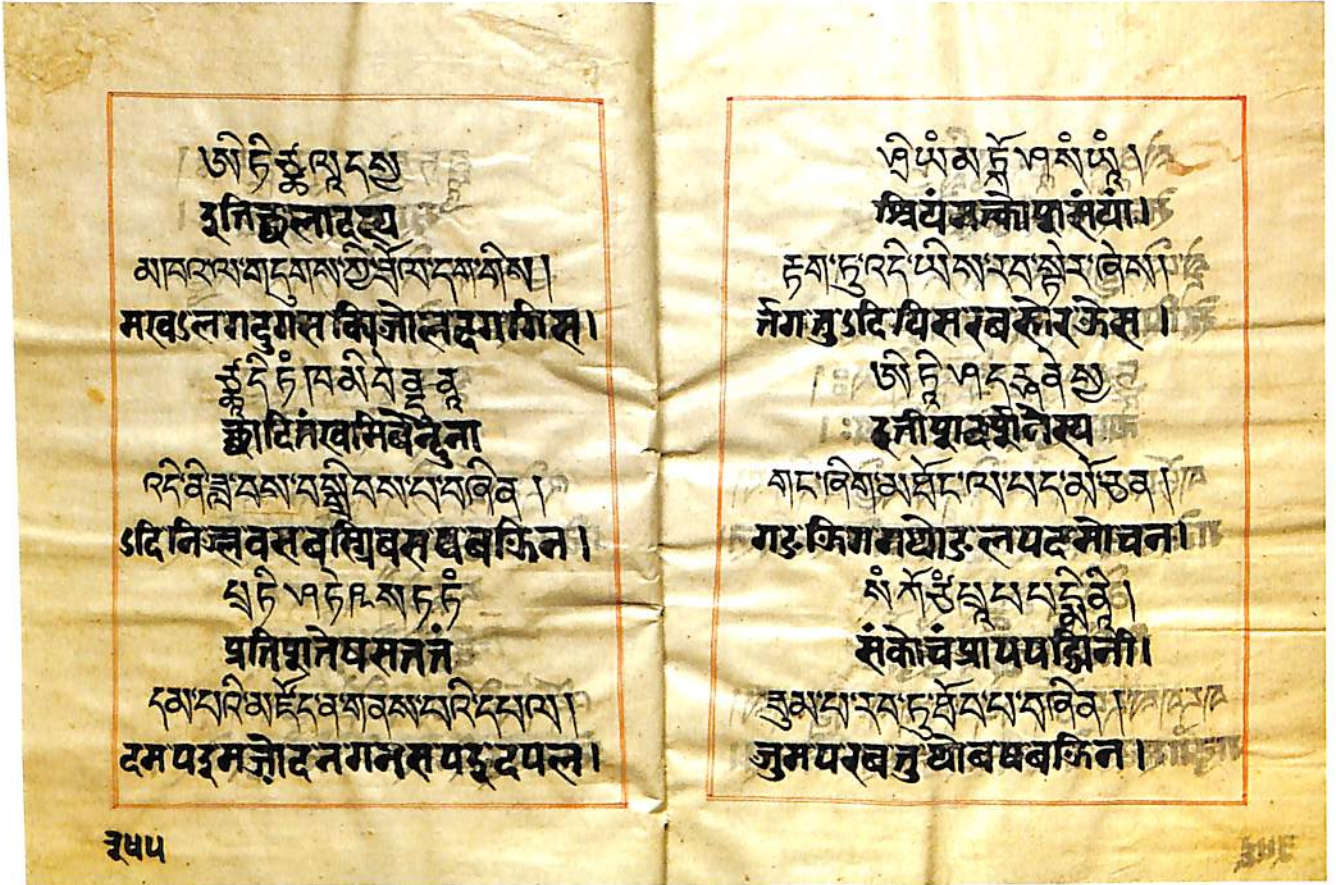 ཨིཏིཙྪལཱདསྱ
इतिच्छलादस्य
མཁའ་ལ་གདུགས་ཀྱི་ཟོལ་དག་གིས།
मखऽलगदुगसक्यिजोलदगगिस।
ཙྪཱདིཏཾཁམིབེནྡུནཱ
च्छादितंखमिबेन्दुना
འདི་ནི་ཟླ་བས་བསྒྲིབས་པ་བཞིན།
ऽदिनिज्लबसबस्ग्रिबसपबझिन།
སཏཏཾ
सततं
དམ་པའི་མཛོད་ན་གནས་པའི་དཔལ།
दमपइमज़ोदनगनसपइदपल।
३५५
ཤྲིཡཾམཏྐོཤསཾ
श्रियंमत्कोशसं
རྟག་ཏུ་འདི་ཡིས་རབ་སྟེར་ཞེས།
र्तगतुऽदियिसरबस्तेरझेस।
གང་ཞིག་མཐོང་ལ་པད་མོ་ཅན།
गङझिगमथोङलपदमोचन।
སཾཀོཙཾཔྲཱཔཔདྨིནཱི།
संकोचंप्रापपद्मिनी।
ཟུམ་པ་རབ་ཏུ་ཐོབ་པ་བཞིན།
जुमपरबतुथोबपबझिन।